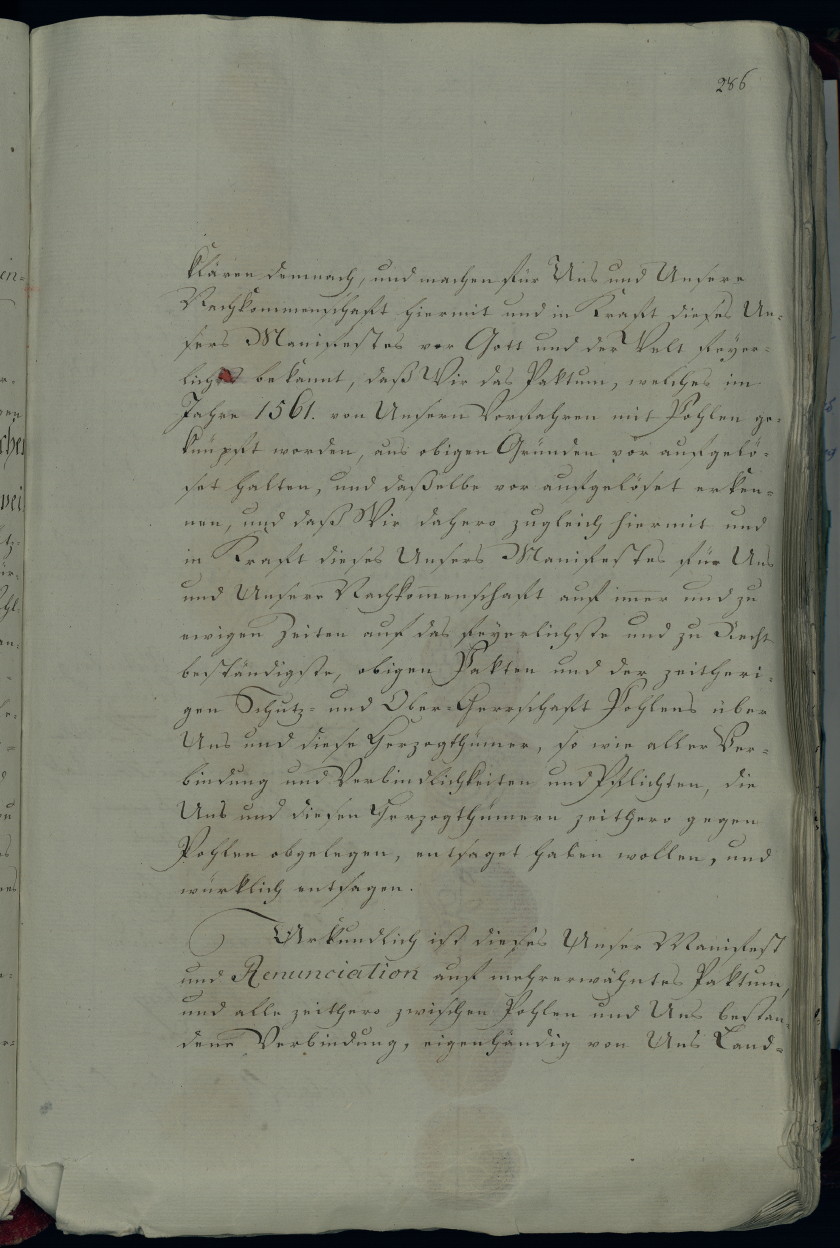 286
klären demnach, und machen für Uns und Unsere
Nachkommenschaft hiermit und in Kraft dieses Un-
sers Manifestes vor Gott und der Welt feyer-
lichst bekannt, daß Wir das Paktum, welches im
Jahre 1561. von Unsern Vorfahren mit Pohlen ge-
knüpft worden, aus obigen Gründen vor aufgelö-
set halten, und daßelbe vor aufgelöset erken-
nen, und daß Wir dahero zugleich hiermit und
in Kraft dieses Unsers Manifestes für Uns
und Unsere Nachkom̄enschaft auf im̄er und zu
ewigen Zeiten auf das feyerlichste und zu Recht
beständigste, obigen Pakten und der zeitheri-
gen Schutz- und Ober-Herrschaft Pohlens über
Uns und diese Herzogthümer, so wie aller Ver-
bindung und Verbindlichkeiten und Pflichten, die
Uns und diesen Herzogthümern zeithero gegen
Pohlen obgelegen, entsaget haben wollen, und
würklich entsagen.
Urkundlich ist dieses Unser Manifest
und Renunciation auf mehrerwähntes Paktum,
und alle zeithero zwischen Pohlen und Uns bestan-
dene Verbindung, eigenhändig von Uns Land-